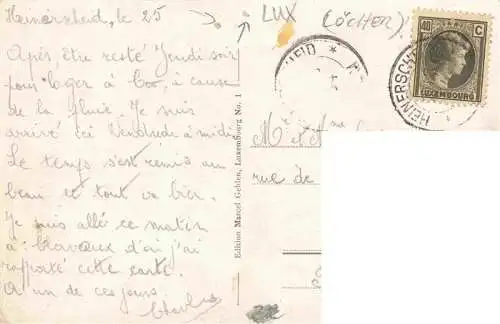 Heinerscheid, le 25
LUX (LÖCHER)!
Après, être resté Jeudi soir
pour loger à
à cause
de la pluie. Je suis
arrivé ici Vendredi à midi
Le temps s'est remis au
beau et tout va bien.
Je suis allé ce matin
à Clervaux d'où j'ai
rapporté cette carte.
A un de ces jours.
Charles
Edition Marcel Gehlen, Luxembourg No. 1
HEINERSCH
40 C
LUXEMBOURG
EID
M et M
rue de